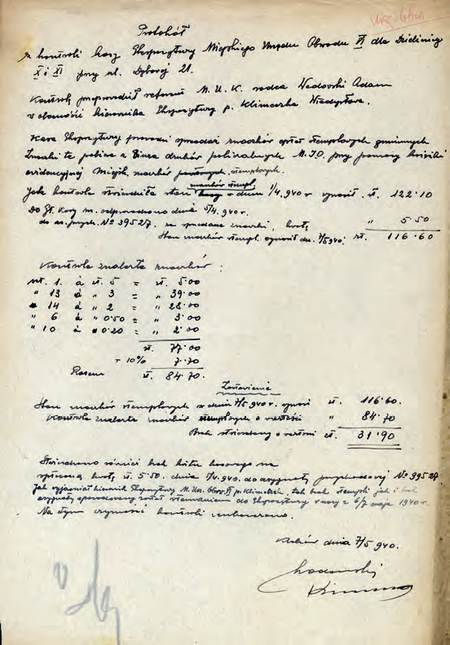 Protokół
z kontroli kasy Ekspozytury Miejskiego Urzędu Obwodu VI dla Dzielnicy
X i XI przy ul. Dębowej 21.
Kontrolę przeprowadził referent M.U.K. radca Wadowski Adam
w obecności kierownika Ekspozytury p. Klimeczka Władysława.
Kasa Ekspozytury prowadzi sprzedaż znaczków opłat stemplowych gminnych
Znaczki te pobiera z Biura druków M.I.O. przy pomocy książki
ewidencyjnej stemplowych.
Jak kontrola stwierdziła stan znaczków stempl. w dniu 1/4.940 r wynosił zł. 122.10
Do Gł. Kasy m. odprowadzono dnia 5/4.940 r.
do as. przych. № 39527. za sprzedane znaczki, kwotę " 5.50
Stan znaczków stempl. wynosił dn. 7/5 940. zł. 116.60
Kontrola znalazła znaczków:
szt. 1. á zł. 5 = zł. 5.00
" 13 á " 3 = " 39.00
" 14 á " 2 = " 28.00
" 6 á " 0.50 = " 3.00
" 10 á " 0.20 = " 2.00
zł. 77.00
+ 10% 7.70
Razem zł. 84.70
Zestawienie
Stan znaczków stemplowych w dniu 7/5 940 r. wynosi zł. 116.60.
Kontrola znalazła znaczków stemplowych o wartości " 84.70
Brak stwierdzony o wartości zł. 31.90
Stwierdzono również brak
kwotę zł. 5.50. dnia 5/4.940. do asygnaty przychodowej № 39527.
Jak wyjaśniał kierownik Ekspozytury M.Urz. Obw. VI p. Klimeczek, tak brak stempli jak i brak
asygnaty spowodowany został włamaniem do Ekspozytury w nocy z 6/7 maja 1940 r.
Na tym czynność kontroli zakończono.
Kraków dnia 7/5 940.